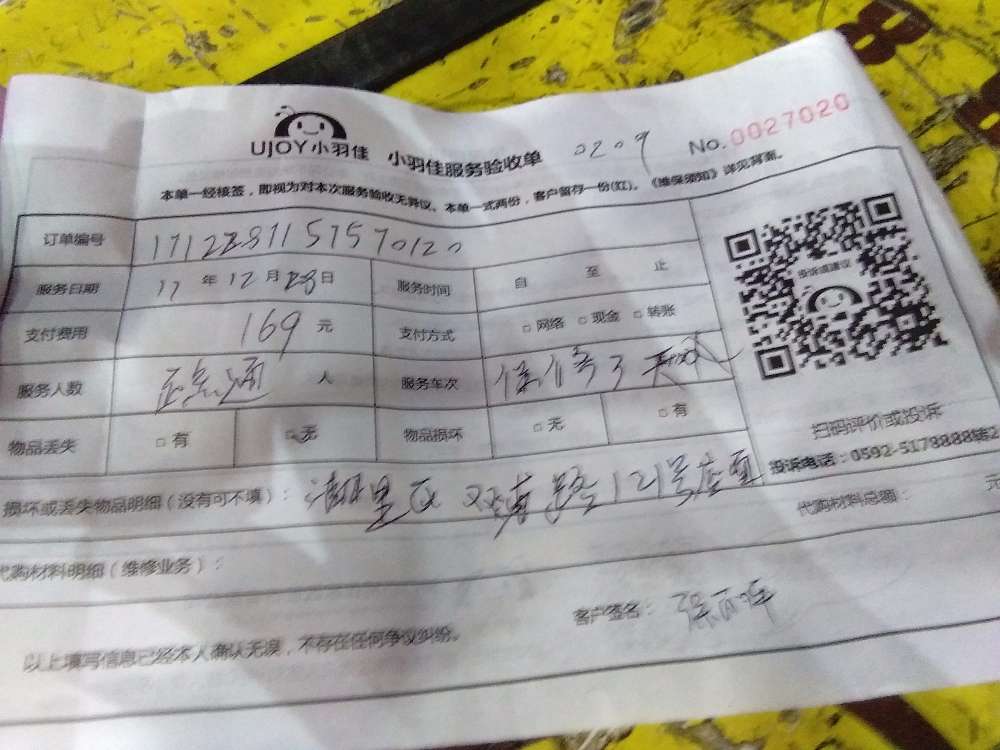 UJOY小羽佳 小羽佳服务验收单 0209 No.0027020
本单一经接签，即视为对本次服务验收无异议。本单一式两份，客户留存一份(红)。《维保须知》详见背面。
订单编号
服务日期 17年12月28日 服务时间 自 至 止
支付费用 169元 支付方式 □网络 □现金 □转账
服务人数 人 服务车次
物品丢失 □有 □无 物品损坏 □无 □有
投诉或建议
扫码评价或投诉
投诉电话：0592-5178888转2
损坏或丢失物品明细（没有可不填）： 121号店面
代购材料总额： 元
代购材料明细（维修业务）：
客户签名：
以上填写信息已经本人确认无误，不存在任何争议纠纷。